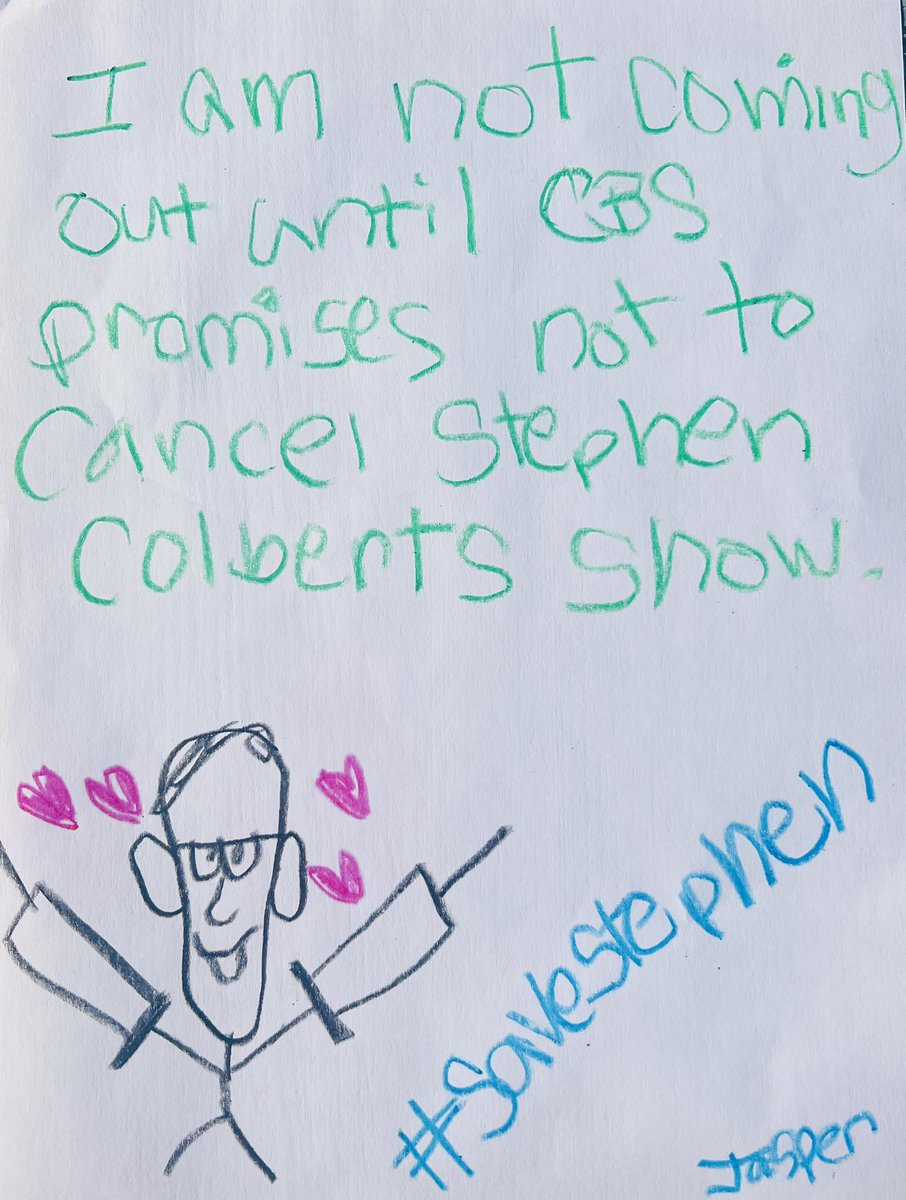 I am not coming
out until CBS
promises not to
Cancel Stephen
Colberts show.
#SaveStephen
Jasper